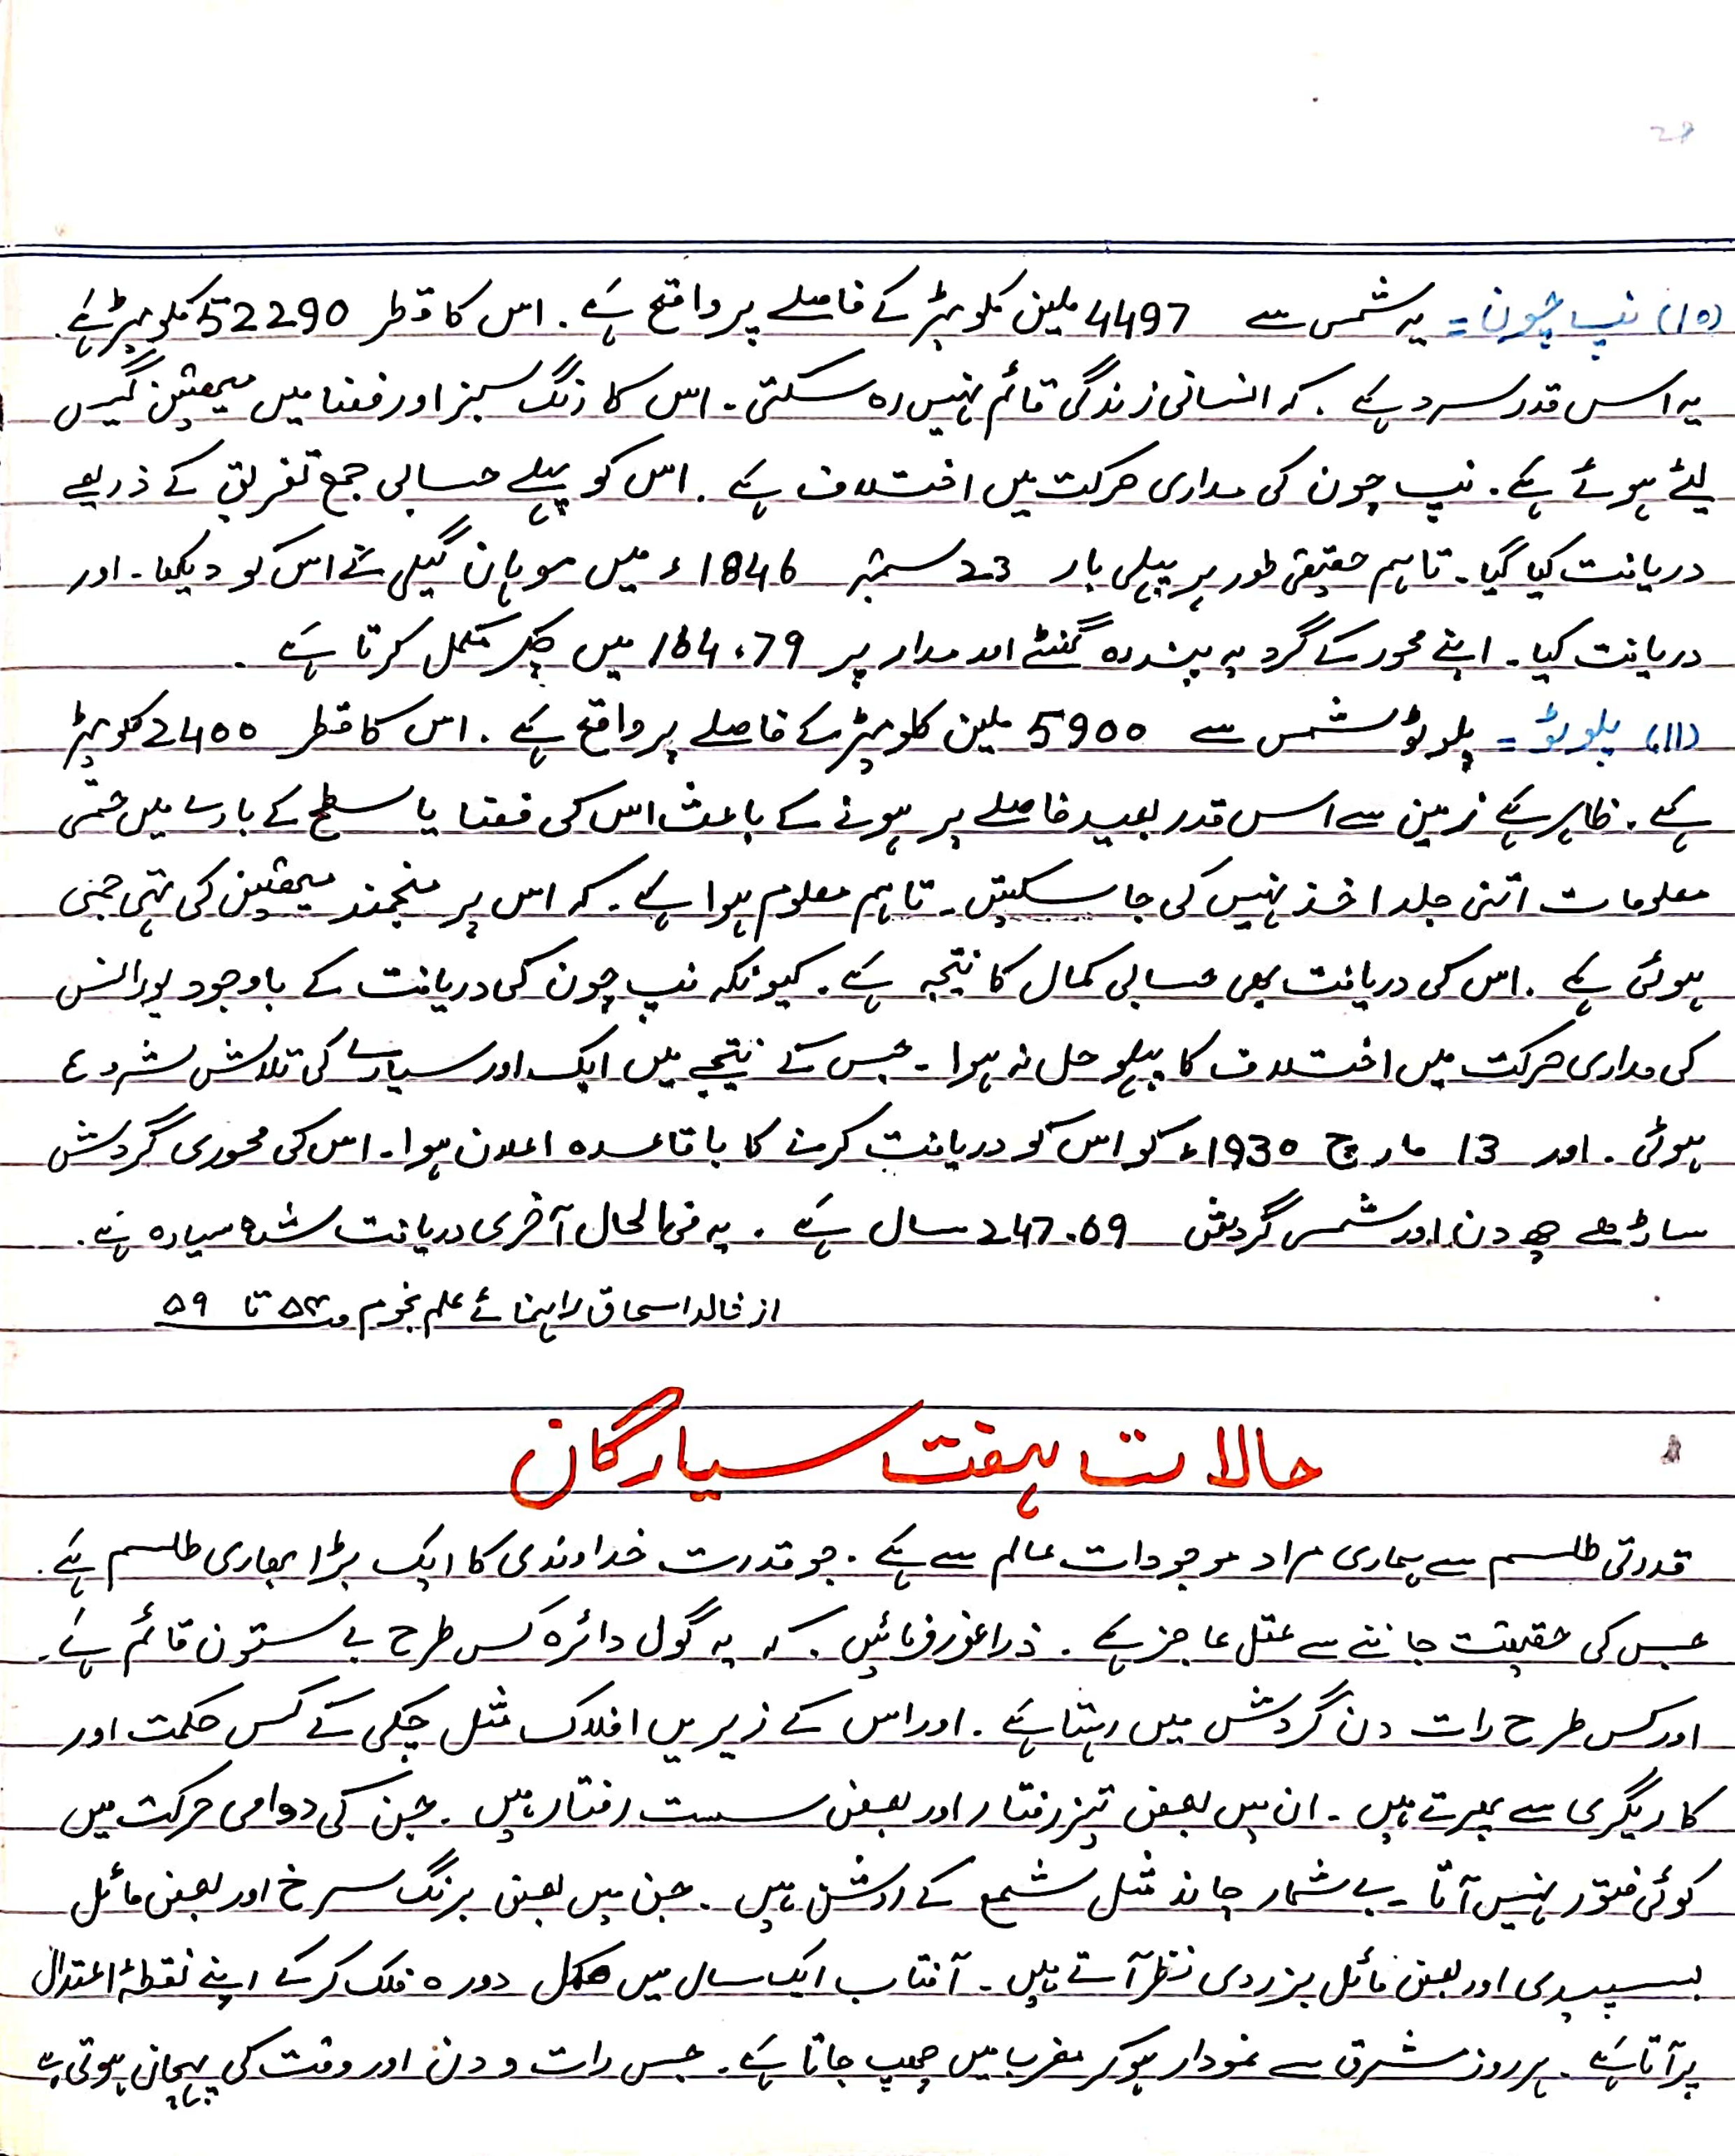 28
(10) نیپ چون = یہ شمس سے 4497 ملین کلومیٹر کے فاصلے پر واقع ہے۔ اس کا قطر 52290 کلومیٹر ہے۔
یہ اس قدر سرد ہے۔ کہ انسانی زندگی قائم نہیں رہ سکتی۔ اس کا رنگ سبز اور فضا میں میتھین گیس
لئے ہوئے ہے۔ نیپ چون کی مداری حرکت میں اختلاف ہے۔ اس کو پہلے حسابی جمع تفریق کے ذریعے
دریافت کیا گیا۔ تاہم حقیقی طور پر پہلی بار 23 ستمبر 1846ء میں موہان گیلی نے اس کو دیکھا۔ اور
دریافت کیا۔ اپنے محور کے گرد یہ پندرہ گھنٹے اور مدار پر 164.79 میں چکر مکمل کرتا ہے۔
(11) پلوٹو = پلوٹو شمس سے 5900 ملین کلومیٹر کے فاصلے پر واقع ہے۔ اس کا قطر 2400 کلومیٹر
ہے۔ ظاہر ہے زمین سے اس قدر بعید فاصلے پر ہونے کے باعث اس کی فضا یا سطح کے بارے میں حتمی
معلومات اتنی جلد اخذ نہیں کی جا سکیتں۔ تاہم معلوم ہوا ہے۔ کہ اس پر منجمند میتھین کی تہی جمی
ہوئی ہے۔ اس کی دریافت بھی حسابی کمال کا نتیجہ ہے۔ کیونکہ نیپ چون کی دریافت کے باوجود یورانس
کی مداری حرکت میں اختلاف کا پہلو حل نہ ہوا۔ جس کے نتیجے میں ایک اور سیارے کی تلاش شروع
ہوئی۔ اور 13 مارچ 1930ء کو اس کو دریافت کرنے کا باقاعدہ اعلان ہوا۔ اس کی محوری گردش
ساڑھے چھ دن اور شمسی گردش 247.69 سال ہے۔ یہ فی الحال آخری دریافت شدہ سیارہ ہے۔
از خالد اسحاق راہنمائے علم نجوم ص ۵۳ تا ۵۹
حالات ہفت سیارگان
قدرتی طلسم سے ہماری مراد موجودات عالم سے ہے۔ جو قدرت خداوندی کا ایک بڑا بھاری طلسم ہے۔
جس کی حقیقت جاننے سے عقل عاجز ہے۔ ذرا غور فرمائیں۔ کہ یہ گول دائرہ کس طرح بے ستون قائم ہے۔
اور کس طرح رات دن گردش میں رہتا ہے۔ اور اس کے زیریں افلاک مثل چکی کے کس حکمت اور
کاریگری سے پھرتے ہیں۔ ان میں بعض تیز رفتار اور بعض سست رفتار ہیں۔ جن کی دوامی حرکت میں
کوئی فتور نہیں آتا۔ بے شمار چاند مثل شمع کے روشن ہیں۔ جن میں بعض برنگ سرخ اور بعض مائل
بسپیدی اور بعض مائل بزردی نظر آتے ہیں۔ آفتاب ایک سال میں مکمل دورہ فلک کر کے اپنے نقطۂ اعتدال
پر آتا ہے۔ ہر روز مشرق سے نمودار ہو کر مغرب میں چھپ جاتا ہے۔ جس رات و دن اور وقت کی پہچان ہوتی ہے